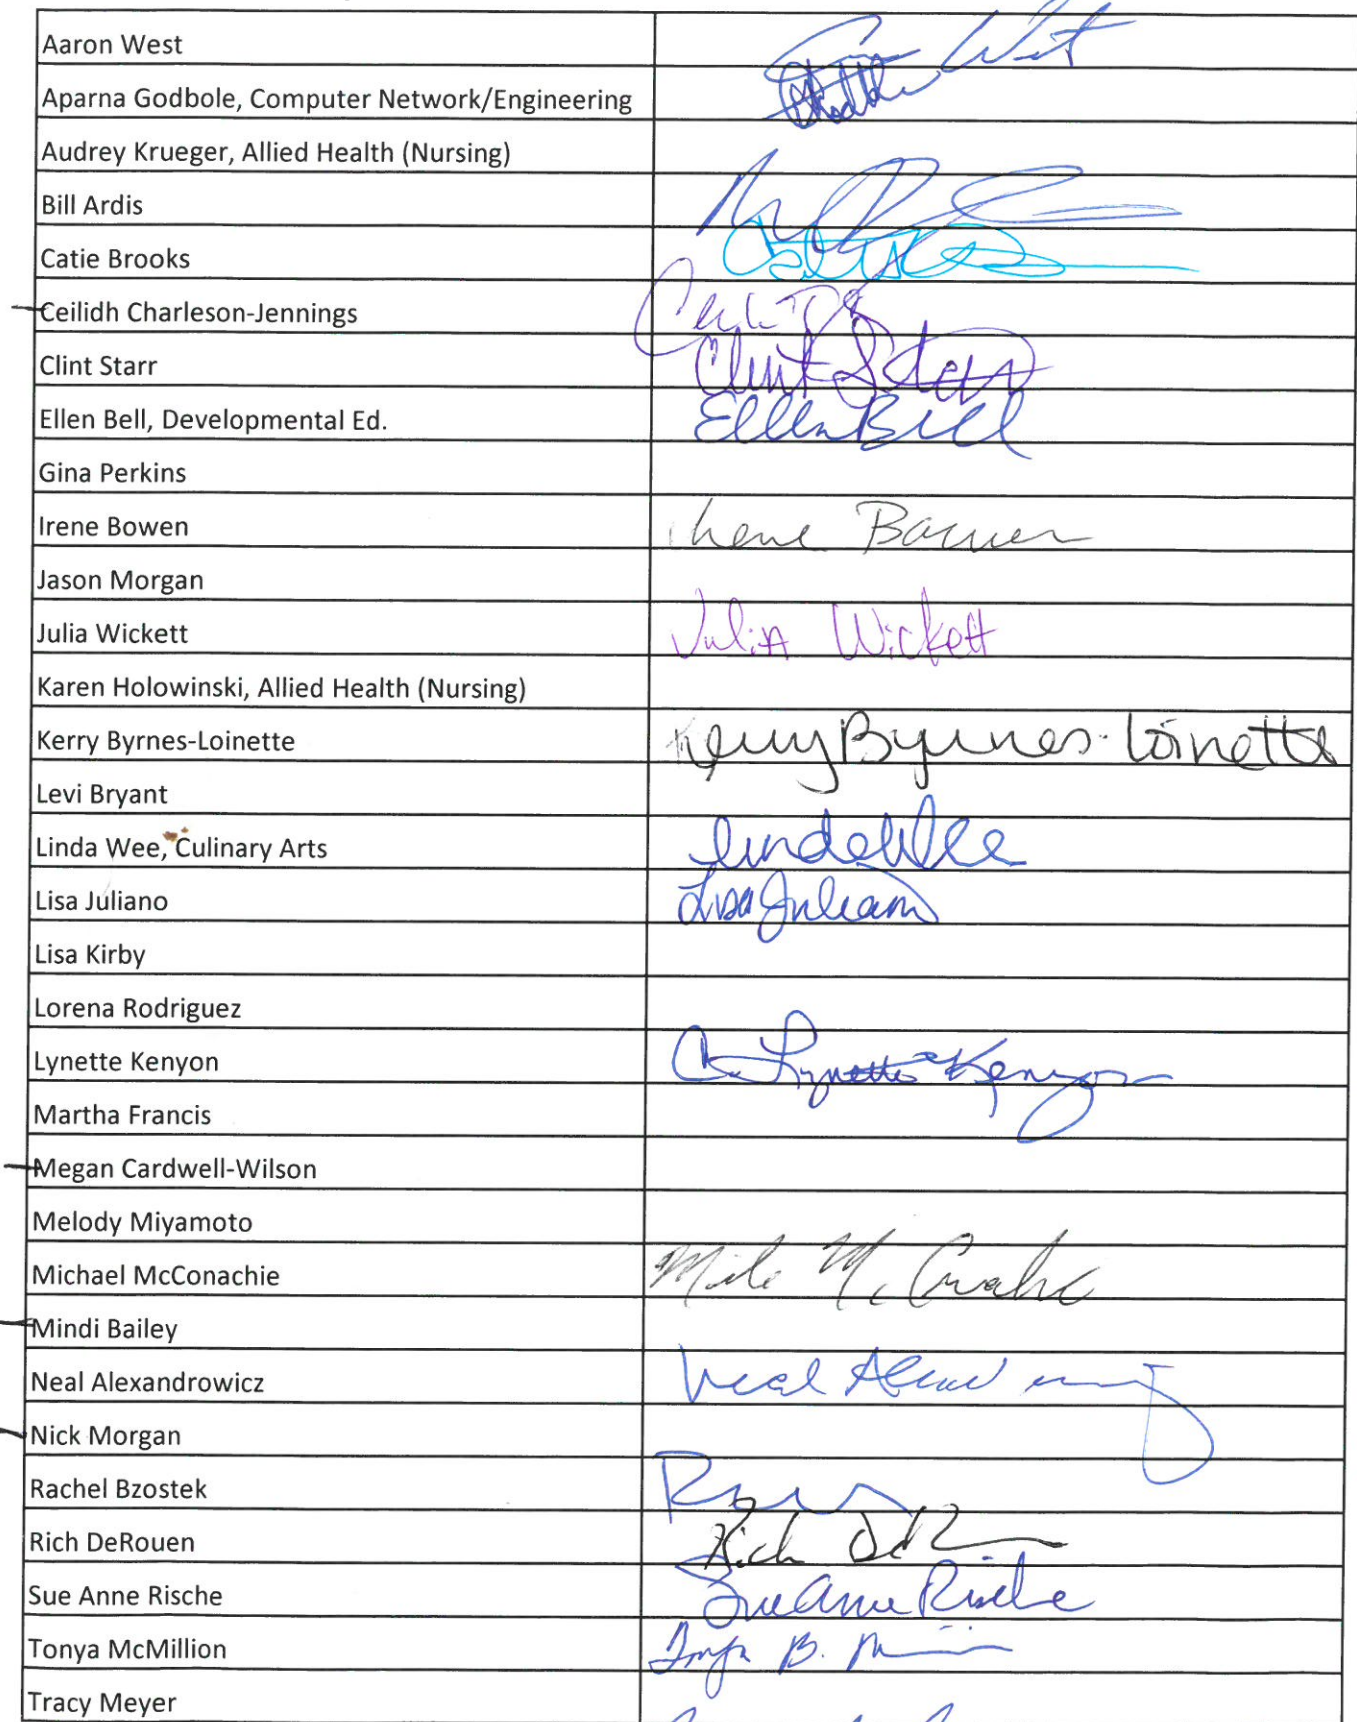 Aaron West
Aparna Godbole, Computer Network/Engineering
Audrey Krueger, Allied Health (Nursing)
Bill Ardis
Catie Brooks
Ceilidh Charleson-Jennings
Clint Starr Clint Starr
Ellen Bell, Developmental Ed. Ellen Bell
Gina Perkins
Irene Bowen Irene Bowen
Jason Morgan
Julia Wickett Julia Wickett
Karen Holowinski, Allied Health (Nursing)
Kerry Byrnes-Loinette Kerry Byrnes-Loinette
Levi Bryant
Linda Wee, Culinary Arts Linda Wee
Lisa Juliano Lisa Juliano
Lisa Kirby
Lorena Rodriguez
Lynette Kenyon C. Lynette Kenyon
Martha Francis
Megan Cardwell-Wilson
Melody Miyamoto
Michael McConachie
Mindi Bailey
Neal Alexandrowicz Neal
Nick Morgan
Rachel Bzostek
Rich DeRouen Rich
Sue Anne Rische Sue Anne Rische
Tonya McMillion
Tracy Meyer